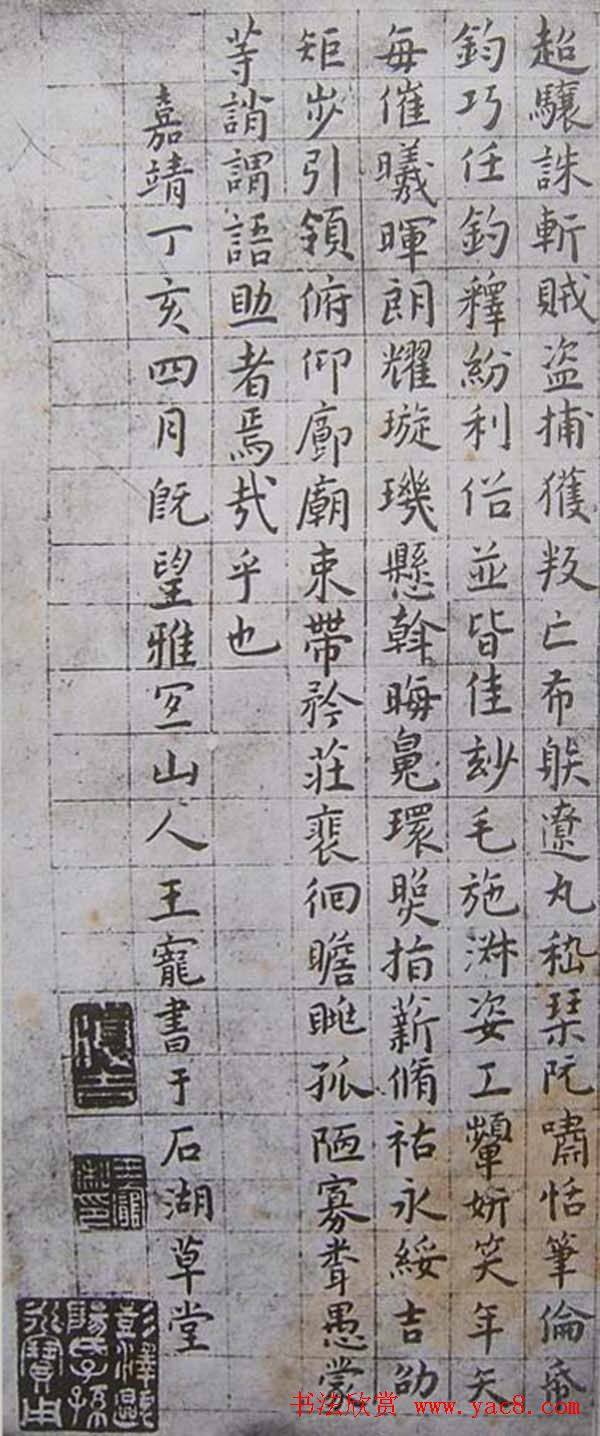 超驤誅斬賊盜捕獲叛亡布躲遼丸嵇琹阮嘯恬筆倫帋
鈞巧任鈞釋紛利俗並皆佳玅毛施淑姿工顰妍笑年矢
每催曦暉朗耀璇璣懸斡晦魄環照指薪脩祜永綏吉劭
矩步引領俯仰廊廟束帶矜莊裴徊瞻眺孤陋寡聞愚蒙
等誚謂語助者焉哉乎也
嘉靖丁亥四月既望雅宜山人王寵書于石湖草堂
履吉
书法欣赏 www.yac8.com